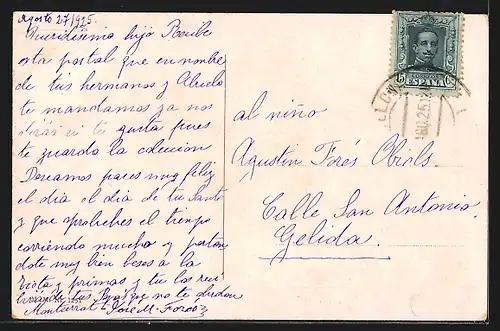 Agosto 27/925.
Queridisimo hijo Recibe
esta postal que en nombre
de tus hermanos y Abuelo
te mandamos ya nos
dirás si te gusta pues
te guardo la coleccion
Deseamos pases muy feliz
el dia el dia de tu Santo
y que aproveches el tiempo
corriendo mucho y portan
dote muy bien besos a la
tieta y primas y tu los reci
de tus que no te olvidan
Montserrat José M. Forés
15 Cs
ESPAÑA
al niño
Agustin Forés Obiols.
Calle San Antonio.
Gelida.